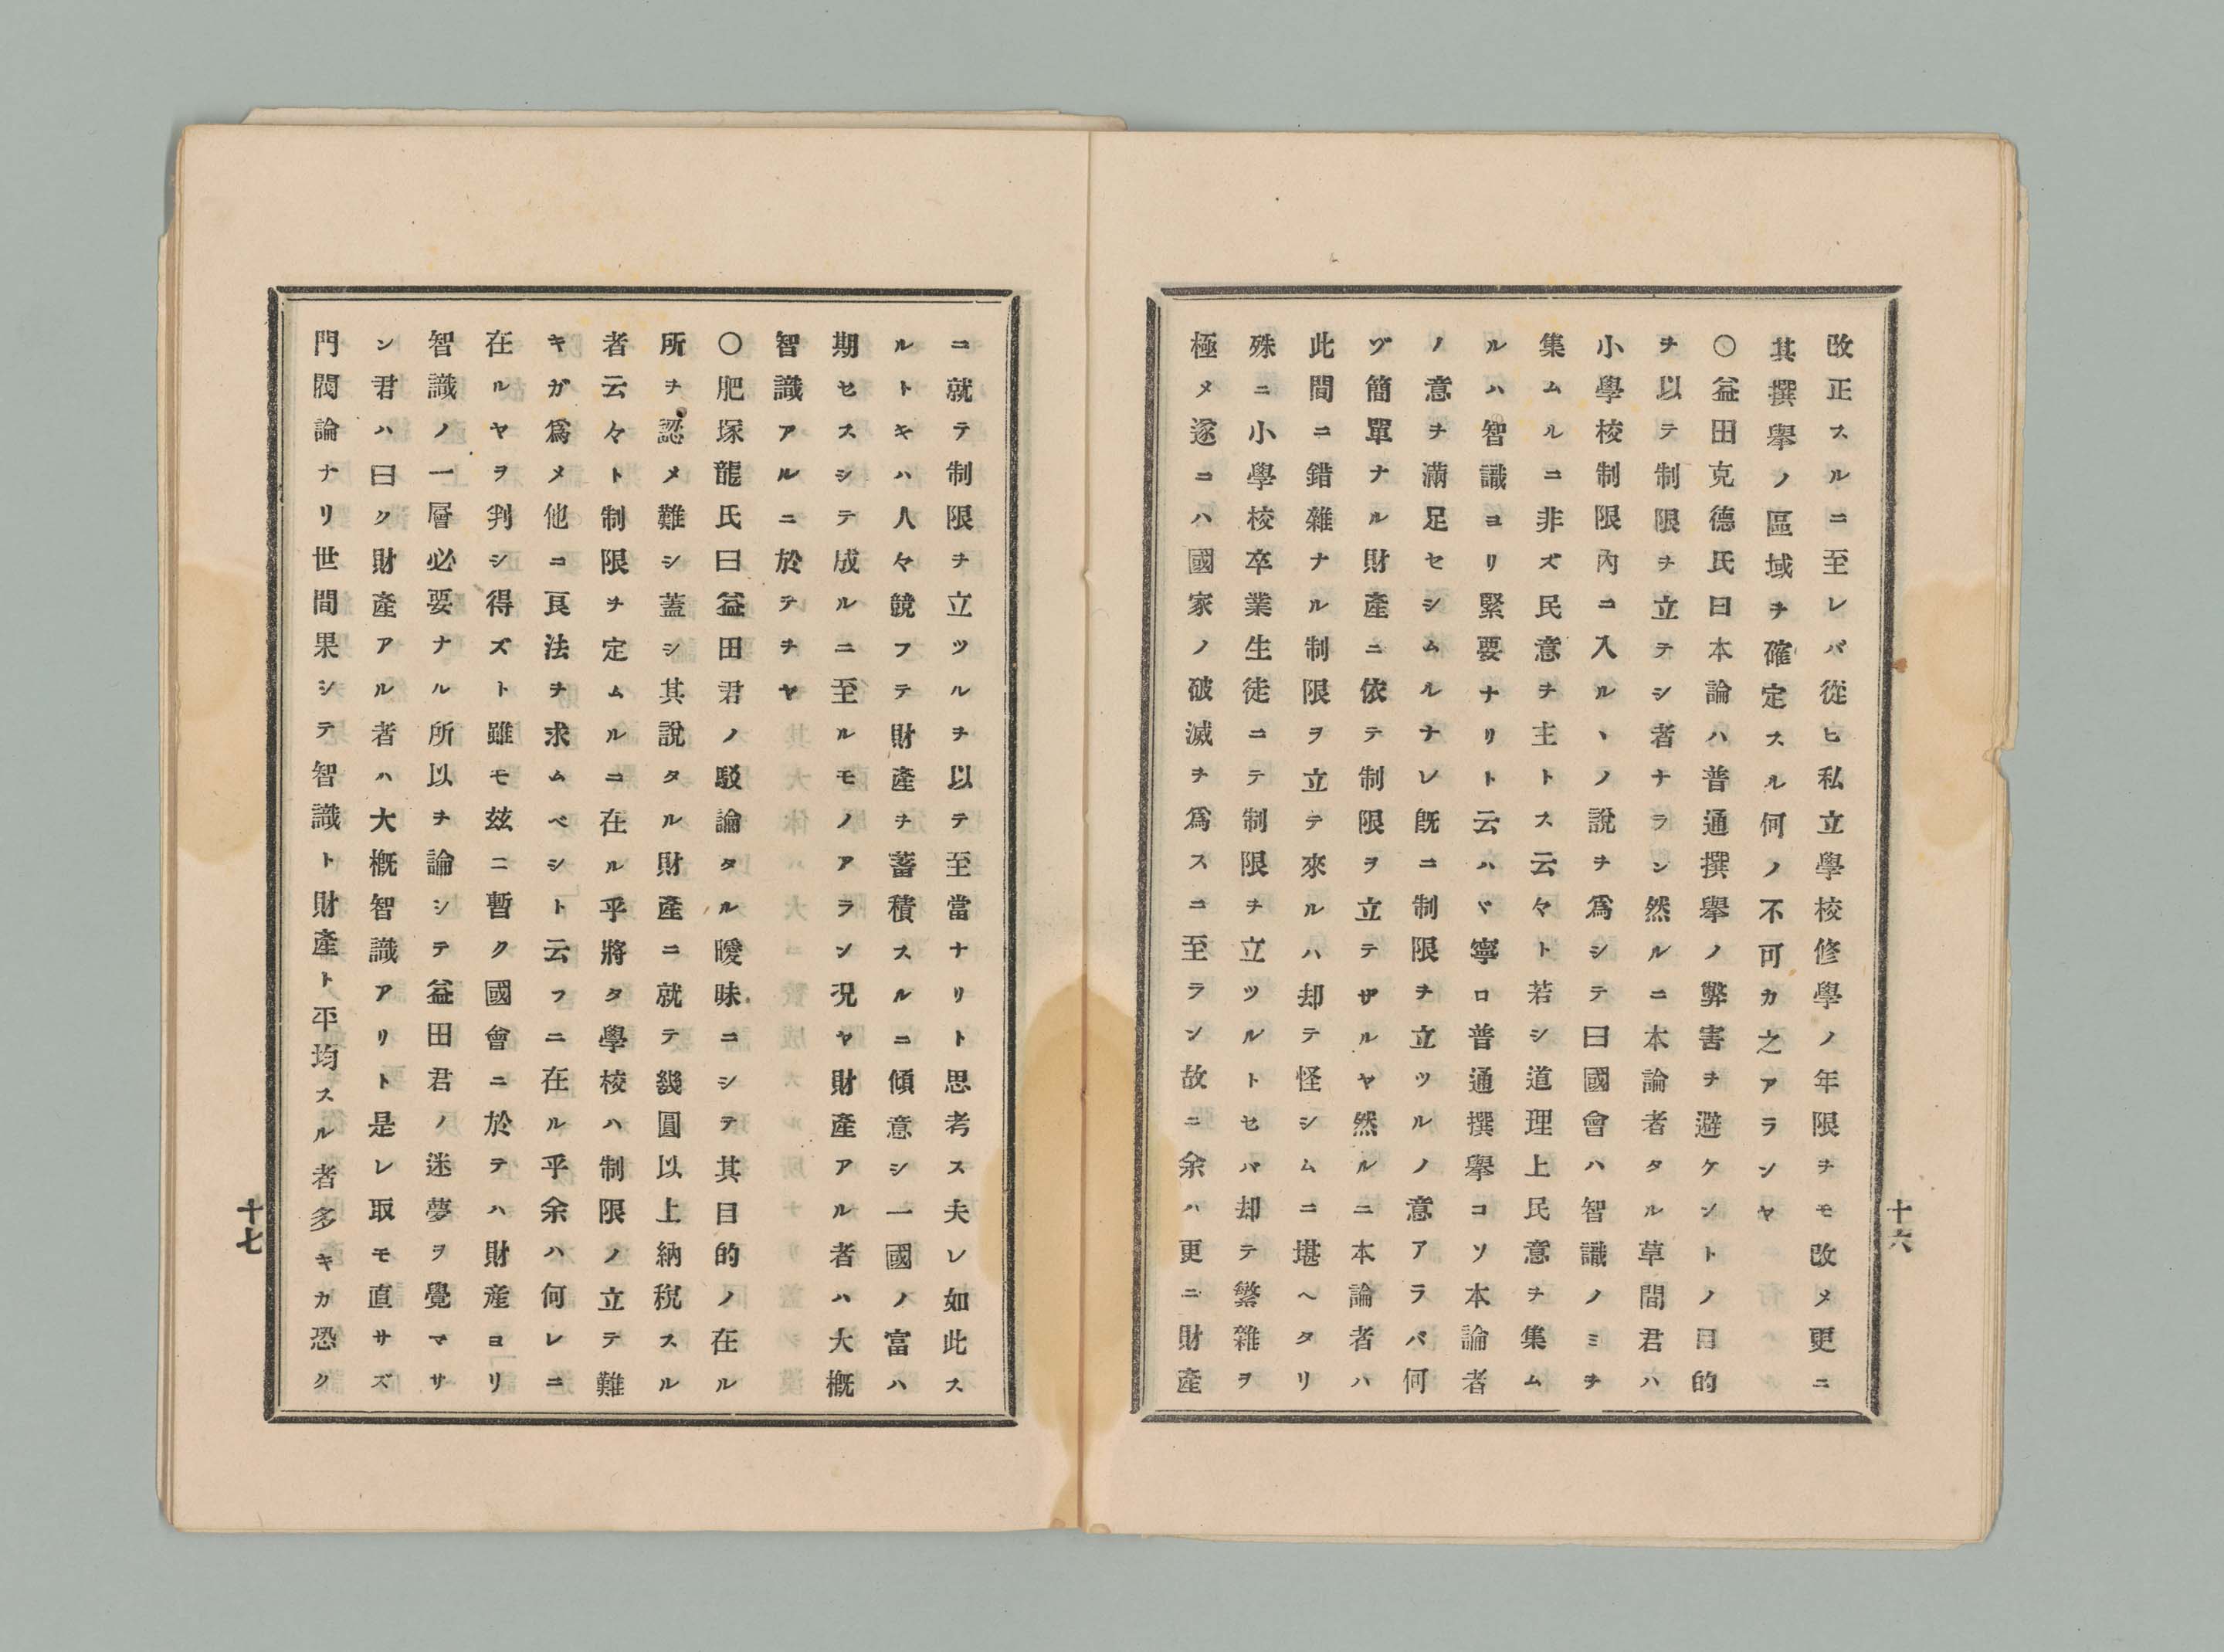 改正スルニ至レバ從ヒ私立學校修學ノ年限ヲモ改メ更ニ
其撰擧ノ區域ヲ確定スル何ノ不可カ之アランヤ
〇益田克德氏曰本論ハ普通撰擧ノ弊害ヲ避ケントノ目的
ヲ以テ制限ヲ立テシ者ナラン然ルニ本論者タル草間君ハ
小學校制限內ニ入ルヽノ說ヲ爲シテ曰國會ハ智識ノミヲ
集ムルニ非ズ民意ヲ主トス云々ト若シ道理上民意ヲ集ム
ルハ智識ヨリ緊要ナリト云ハヾ寧ロ普通撰擧コソ本論者
ノ意ヲ滿足セシムルナレ旣ニ制限ヲ立ツルノ意アラバ何
ゾ簡單ナル財產ニ依テ制限ヲ立テザルヤ然ルニ本論者ハ
此間ニ錯雜ナル制限ヲ立テ來ルハ却テ怪シムニ堪ヘタリ
殊ニ小學校卒業生徒ニテ制限ヲ立ツルトセバ却テ繁雜ヲ
極メ遂ニハ國家ノ破滅ヲ爲スニ至ラン故ニ余ハ更ニ財產
十六
ニ就テ制限ヲ立ツルヲ以テ至當ナリト思考ス夫レ如此ス
ルトキハ人々競フテ財產ヲ蓄積スルニ傾意シ一國ノ富ハ
期セスシテ成ルニ至ルモノアラン况ヤ財產アル者ハ大槪
智識アルニ於テヲヤ
〇肥塚龍氏曰益田君ノ駁論タル曖昧ニシテ其目的ノ在ル
所ヲ認メ難シ蓋シ其說タル財產ニ就テ幾圓以上納稅スル
者云々ト制限ヲ定ムルニ在ル乎將タ學校ハ制限ノ立テ難
キガ爲メ他ニ良法ヲ求ムベシト云フニ在ル乎余ハ何レニ
在ルヤヲ判シ得ズト雖モ玆ニ暫ク國會ニ於テハ財產ヨリ
智識ノ一層必要ナル所以ヲ論シテ益田君ノ迷夢ヲ覺マサ
ン君ハ曰ク財產アル者ハ大槪智識アリト是レ取モ直サズ
門閥論ナリ世間果シテ智識ト財產ト平均スル者多キカ恐ク
十七